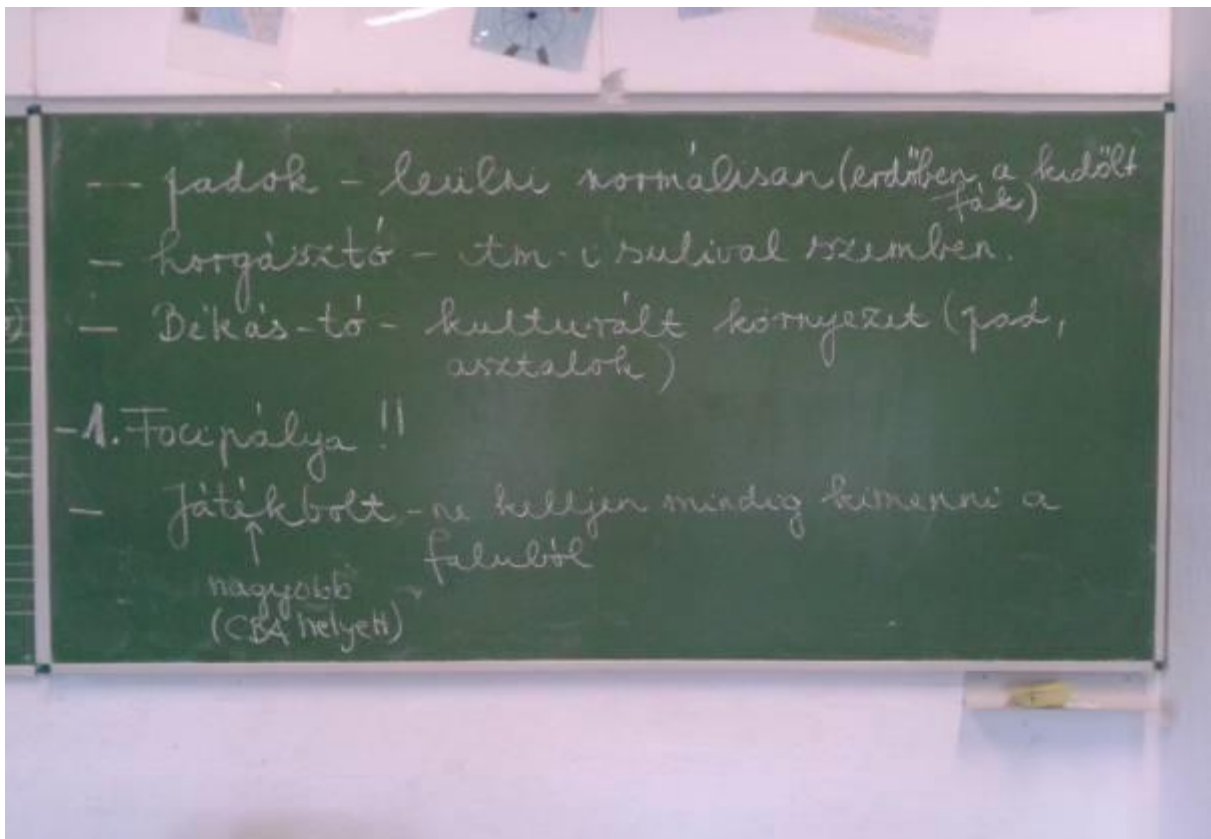 — padok - leülni normálisan (erdőben a kidőlt
fák)
- horgásztó - tm-i sulival szemben.
- Békás-tó - kulturált környezet (pad,
asztalok)
-1. Focipálya !!
- Játékbolt - ne kelljen mindig kimenni a
faluból
↑
nagyobb
(CBA helyett)